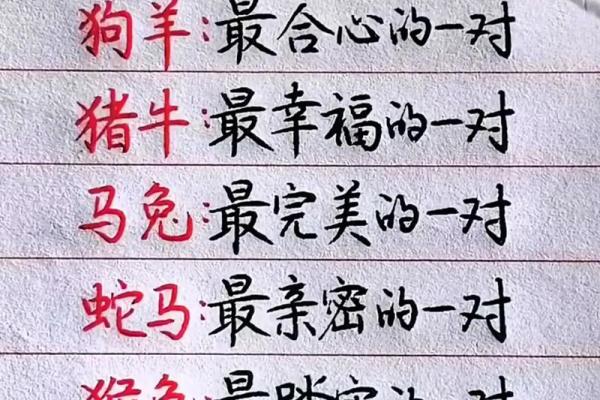 狗羊:最合心的一对
猪牛:最幸福的一对
马兔:最完美的一对
蛇马:最亲密的一对
猴兔:最踏实的一对